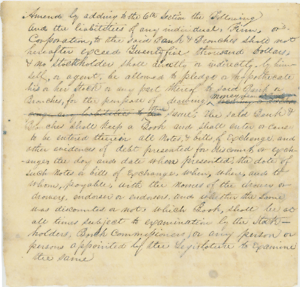 Amend by adding to the 6th Section the Following
and the liabilities of any individual, Firm, or
Corporation, to the said Bank & Branches shall not
hereafter exceed Twenty five thousand Dollars,
& no Stockholder shall directly or indirectly, by him
self, or agent, be allowed to pledge or hypothecate
his or her Stock or any part thereof to said Bank or
Branches, for the purpose of
the said Bank &
Branches shall keep a Book and shall enter or cause
to be entered therein all Notes & bills of Exchange and
other evidences of debt presented for discount or exchange
the day and date when presented the date of
such notes & bills of Exchange when, where, and to
whom, payable, with the names of the drawer or
drawers, endorser or endorsers, and whether the same
was discounted or not which Book, shall be at
all times subject to examination by the Stock-
holders, Bank Commissioners, or any person or
persons appointed by the Legislature to examine
the same